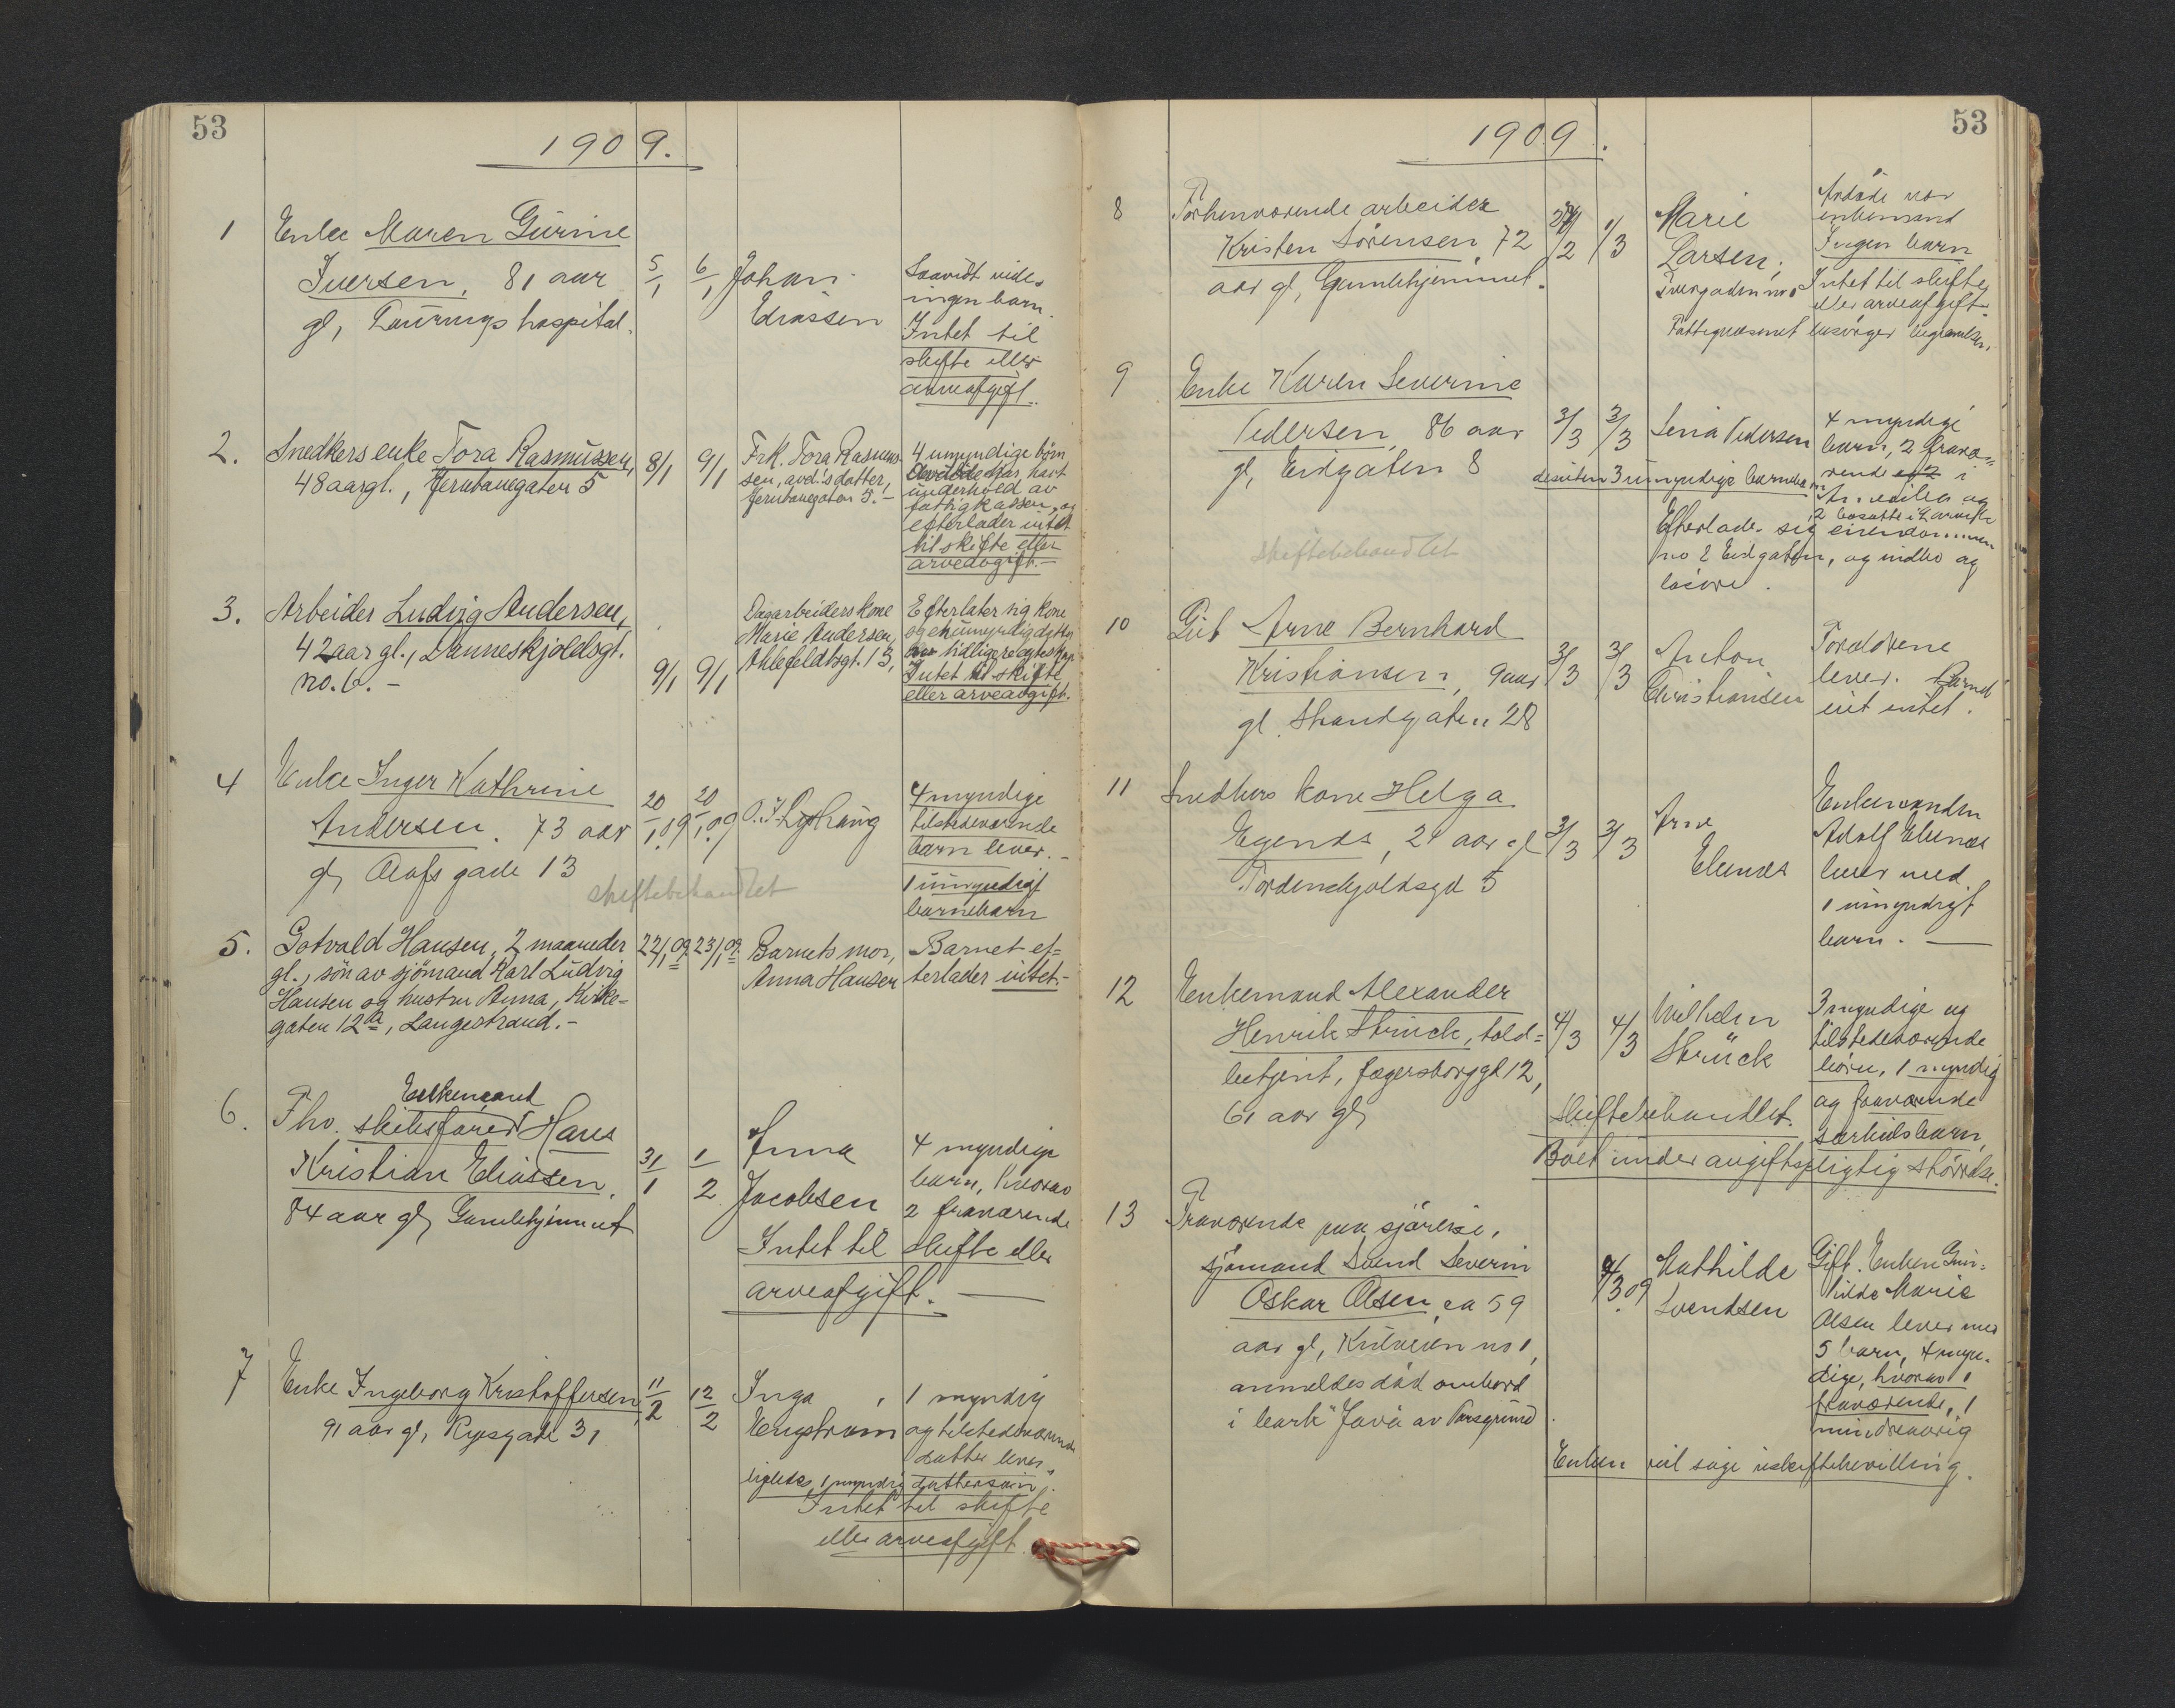 53
1909.
1
Enke Maren Gurine
Iversen, 81 aar
gl, Laurings hospital.
5/1
6/1
Johan
Eliassen
Saavidt vides
ingen barn.
Intet til
skifte eller
arveafgift.
2.
Snedkers enke Tora Rasmussen,
48 aar gl., Jernbanegaten 5
8/1
9/1
Frk. Tora Rasmus-
sen, avd.'s datter,
Jernbanegaten 5.-
4 umyndige börn
Avdöde har hat
underhold av
fattigkassen, og
efterlader intet
til skifte eller
arveavgift.-
3.
Arbeider Ludvig Andersen,
42 aar gl., Danneskjoldsgt.
no. 6.-
9/1
9/1
Dagarbeiders kone
Marie Andersen,
Ahlefeldtsgt. 13,
Efterlater sig kone
og en umyndig datter
av tidligere egteskap
Intet til skifte
eller arveavgift.
4
Enke Inger Kathrine
Andersen. 73 aar
gl Olafs gade 13
20/1.09
20/1.09
O. J. Lyshaug
4 myndige
tilstedeværende
barn lever.-
1 umyndigt
barnebarn
skiftebehandlet
5.
Gotvald Hansen, 2 maaneder
gl., sön av sjömand Karl Ludvig
Hansen og hustru Anna, Kirke-
gaten 12a, Langestrand.-
22/1.09
23/1.09
Barnets mor,
Anna Hansen
Barnet ef-
terlader intet.-
6.
Enkemand
Fhv. skibsfører Hans
Kristian Eliassen,
84 aar gl, Gamlehjemmet
31/1
1/2
Anna
Jacobsen
4 myndige
barn, hvorav
2 fraværende
Intet til skifte eller
arveafgift.
7
Enke Ingeborg Kristoffersen,
91 aar gl, Rysgade 31
11/2
12/2
Inga
Engstrøm
1 myndig
og tilstedeværende
datter lever,
ligledes 1 myndig dattersøn.
Intet til skifte
eller arveafgift.
53
1909.
8
Forhenværende arbeider
Kristen Sörensen 72
aar gl, Gamlehjemmet.
/2
1/3
Marie
Larsen,
Tvergaden no
Avdöde var
enkemand
Ingen barn
Intet til skifte
eller arveafgift.
Fattigvæsenet besörger begravelsen.
9
Enke Karen Severine
Pedersen, 86 aar
gl, Eidgaten 8
3/3
3/3
Lena Pedersen
4 myndige
barn, 2 fravæ-
rende i
Amerika og
2 bosatte i Larvik
desuten 3 umyndige barnebarn
Efterlader sig eiendommen
no 2 Eidgaten, og indbo og
lösöre.
skiftebehandlet
10
Gut Arne Bernhard
Kristiansen, 9 aar
gl. Strandgaten 28
3/3
3/3
Anton
Christiansen
Forældrene
lever. Barnet
eiet intet.
11
Snedkers kone Helga
Egenæs, 21 aar gl
Tordenskjoldsgd 5
3/3
3/3
Arne
Ekenæs
Enkemanden
Adolf Ekenæs
lever med
1 umyndigt
barn.
12
Enkemand Alexander
Henrik Strück, told-
betjent, Jægersborggd 12,
61 aar gl
4/3
4/3
Wilhelm
Strück
3 myndige og
tilstedeværende
börn, 1 myndig
og fraværende
særkulsbarn,
Skiftebehandlet.
Boet under avgiftspligtig störrelse.
13
Fraværende paa sjöreise,
sjömand Svend Severin
Oskar Olsen, ca 59
aar gl, Kulveien no 1,
anmeldes död ombord
i bark "Java" av Porsgrund
9/3 09
Mathilde
Svendsen
Gift. Enken Gun-
hilde Marie
Olsen lever med
5 barn, 4 myn-
dige, hvorav 1
fraværende, 1
mindreaarig
Enken vil söge uskiftebevilling.